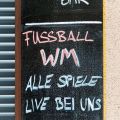 BAR
FUSSBALL
WM
ALLE SPIELE
LIVE BEI UNS